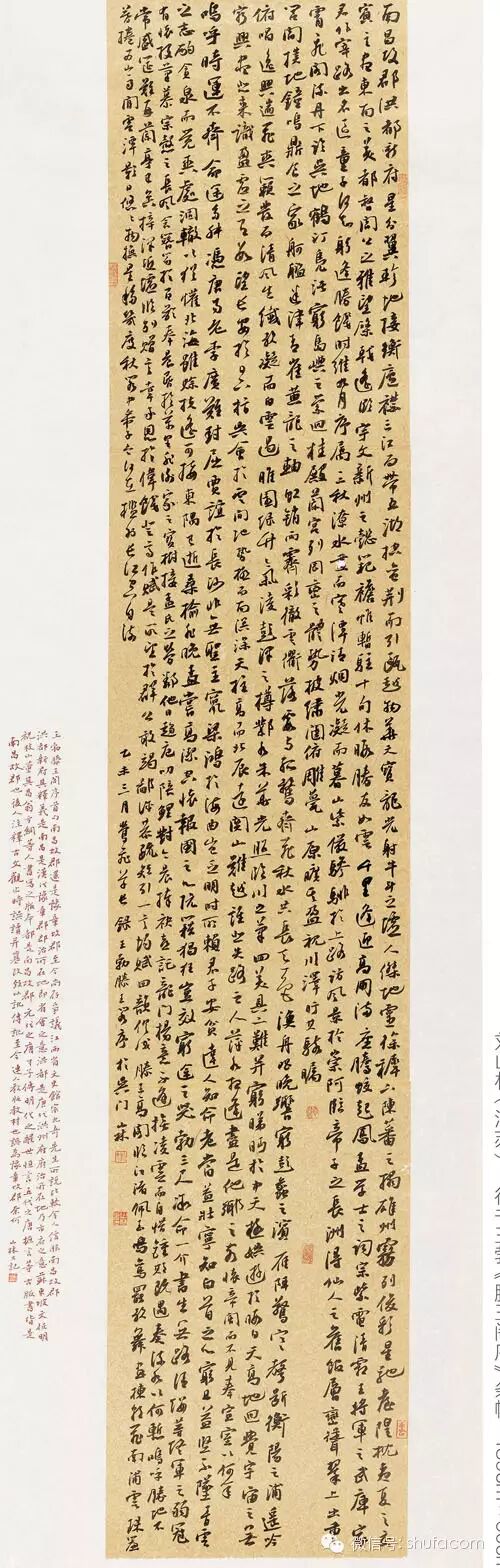 南昌故郡洪都新府星分翼軫地接衡廬襟三江而帶五湖控蠻荊而引甌越物華天寶龍光射牛斗之墟人傑地靈徐孺下陳蕃之榻雄州霧列俊彩星馳臺隍枕夷夏之交
賓主盡東南之美都督閻公之雅望棨戟遙臨宇文新州之懿範襜帷暫駐十旬休暇勝友如雲千里逢迎高朋滿座騰蛟起鳳孟學士之詞宗紫電清霜王將軍之武庫家
君作宰路出名區童子何知躬逢勝餞時維九月序屬三秋潦水盡而寒潭清煙光凝而暮山紫儼驂騑於上路訪風景於崇阿臨帝子之長洲得仙人之舊館層巒聳翠上出重
霄飛閣流丹下臨無地鶴汀鳧渚窮島嶼之縈迴桂殿蘭宮列岡巒之體勢披繡闥俯雕甍山原曠其盈視川澤盱其駭矚
閭閻撲地鐘鳴鼎食之家舸艦迷津青雀黃龍之軸虹銷雨霽彩徹雲衢落霞與孤鶩齊飛秋水共長天一色漁舟唱晚響窮彭蠡之濱雁陣驚寒聲斷衡陽之浦遙吟
俯暢逸興遄飛爽籟發而清風生纖歌凝而白雲遏睢園綠竹氣凌彭澤之樽鄴水朱華光照臨川之筆四美具二難并窮睇眄於中天極娛遊於暇日天高地迥覺宇宙之無
窮興盡悲來識盈虛之有數望長安於日下指吳會於雲間地勢極而南溟深天柱高而北辰遠關山難越誰悲失路之人萍水相逢盡是他鄉之客懷帝閽而不見奉宣室以何年
嗚呼時運不齊命途多舛馮唐易老李廣難封屈賈誼於長沙非無聖主竄梁鴻於海曲豈乏明時所賴君子安貧達人知命老當益壯寧知白首之心窮且益堅不墜青雲
之志酌貪泉而覺爽處涸轍以猶懽北海雖賒扶搖可接東隅已逝桑榆非晚孟嘗高潔空懷報國之心阮籍猖狂豈效窮途之哭勃三尺微命一介書生無路請纓等終軍之弱冠
有懷投筆慕宗慤之長風舍簪笏於百齡奉晨昏於萬里非謝家之寶樹接孟氏之芳鄰他日趨庭叨陪鯉對今晨捧袂喜託龍門楊意不逢撫凌雲而自惜鍾期既遇奏流水以何慚嗚呼勝地不
常盛筵難再蘭亭已矣梓澤丘墟臨別贈言幸承恩於偉餞登高作賦是所望於群公敢竭鄙誠恭疏短引一言均賦四韻俱成滕王高閣臨江渚佩玉鳴鸞罷歌舞畫棟朝飛南浦雲珠簾
暮捲西山雨閒雲潭影日悠悠物換星移幾度秋閣中帝子今何在檻外長江空自流
乙未三月鶯飛草長錄王勃滕王閣序於吳門
王勃滕王閣序首句南昌故郡還是豫章故郡至今尚存爭議江西省文史館宗九奇先生所說比較令人信服南昌故郡
南昌故郡也後人注釋古文觀止時誤讀
微信号: shufacom